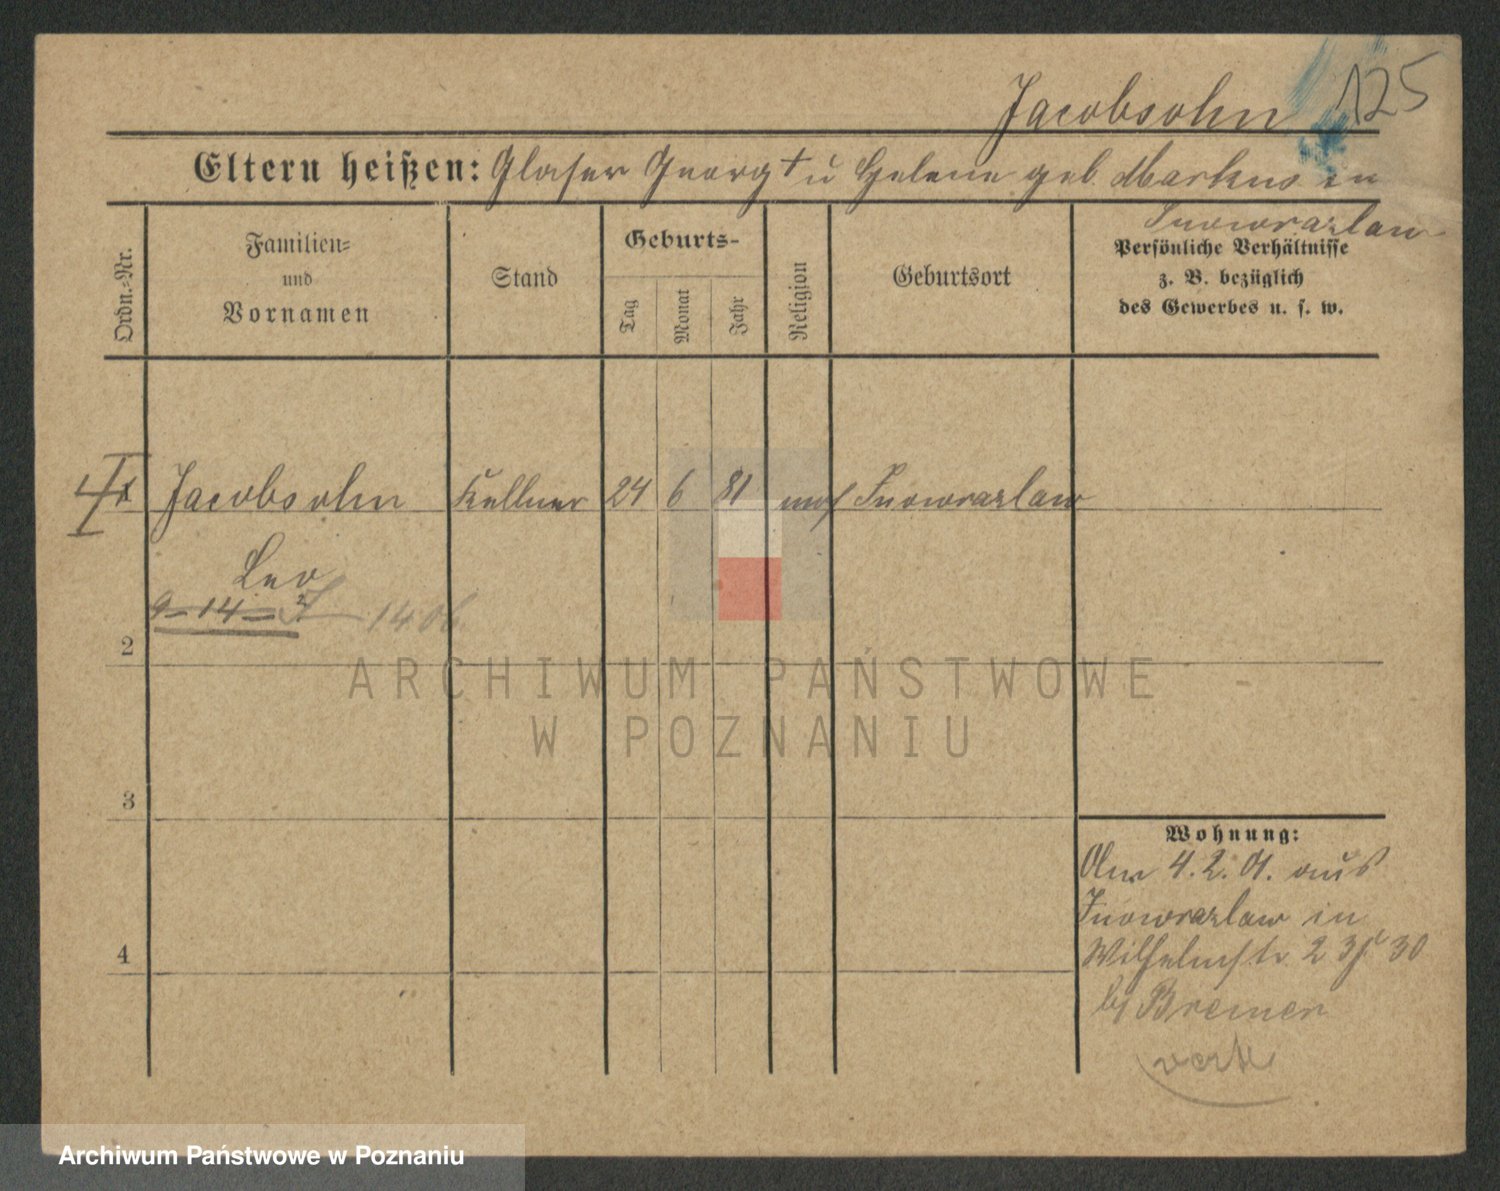 Jacobsohn 125
Eltern heißen: Glaser Georg † u Helene geb. Markus in
Inowrazlaw
Ordn.=Nr.
Familien=
und
Vornamen
Stand
Geburts-
Tag
Monat
Jahr
Religion
Geburtsort
Persönliche Verhältnisse
z. B. bezüglich
des Gewerbes u. s. w.
Jacobsohn Kellner 24 6 81 mos Inowrazlaw
Leo
9-14=
2
3
4
ARCHIWUM PAŃSTWOWE
W POZNANIU
Wohnung:
Am 4.2.01. aus
Inowrazlaw in
Wilhelmstr. 23 30
b/ Bremer
Archiwum Państwowe w Poznaniu